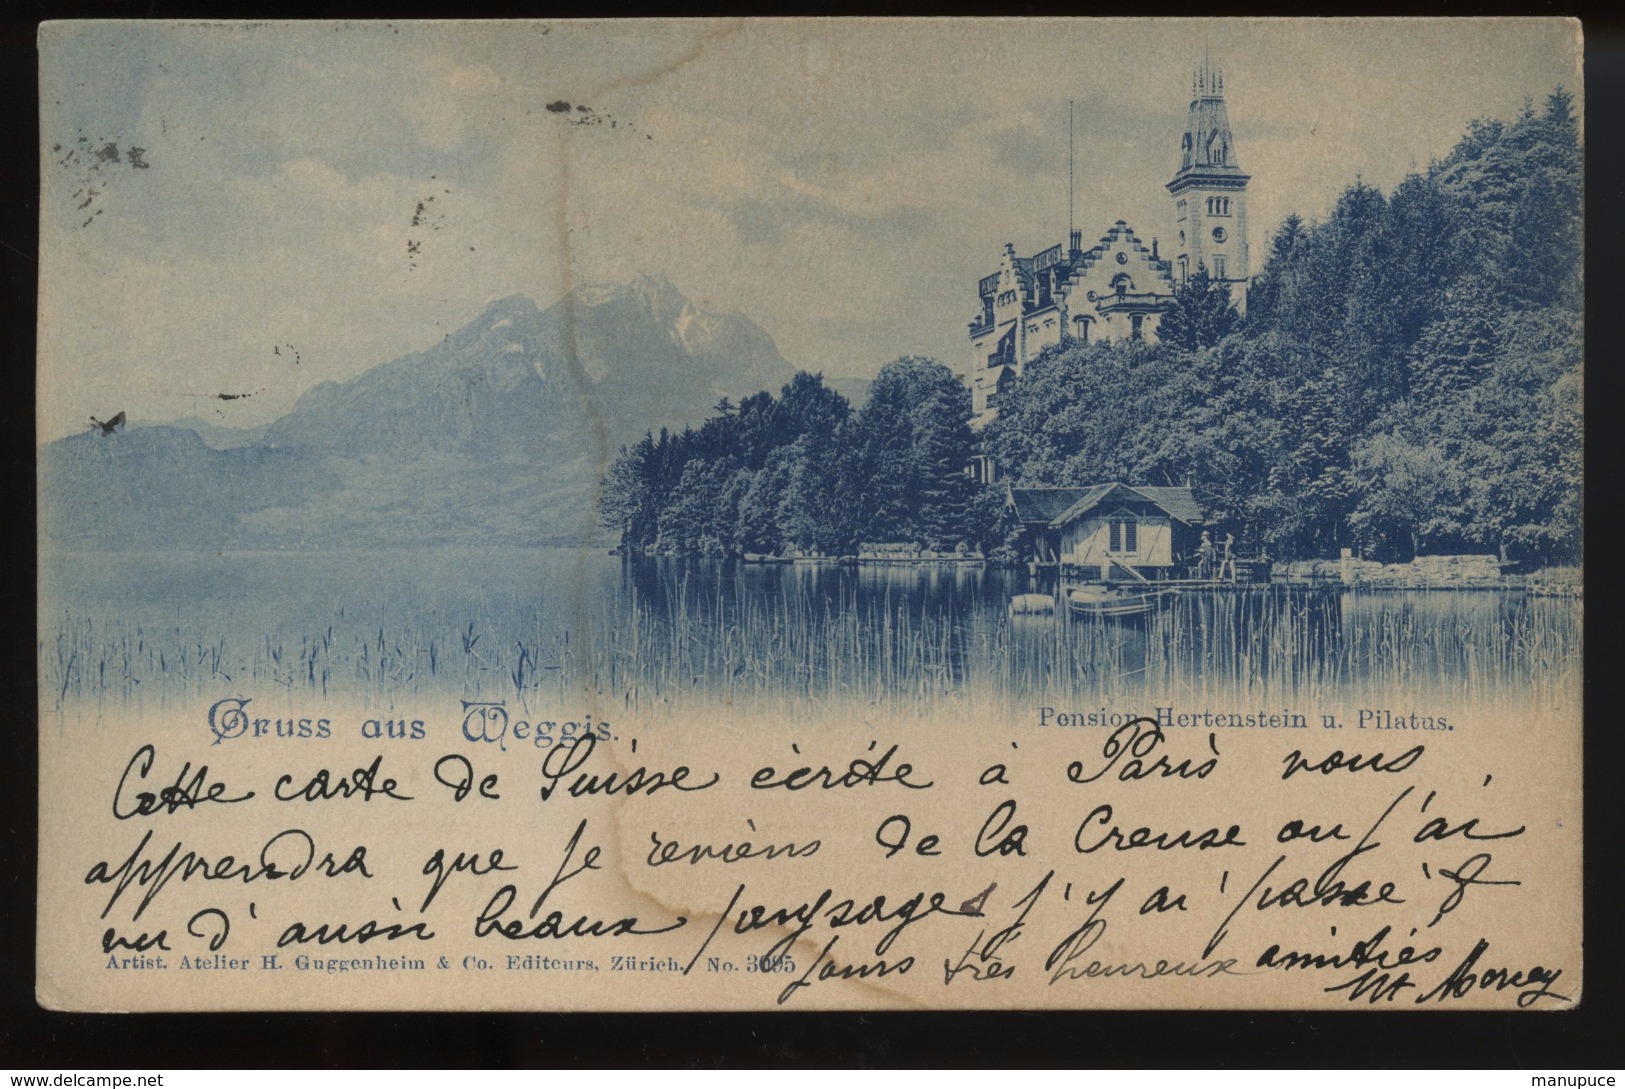 Gruss aus Weggis.
Pension Hertenstein u. Pilatus.
Cette carte de Suisse écrite à Paris vous
apprendra que je reviens de la Creuse ou j'ai
vu d'aussi beaux paysages j'y ai passé 8
jours très heureux amitiés
Artist. Atelier H. Guggenheim & Co. Editeurs, Zürich. No. 3095
www.delcampe.net
manupuce